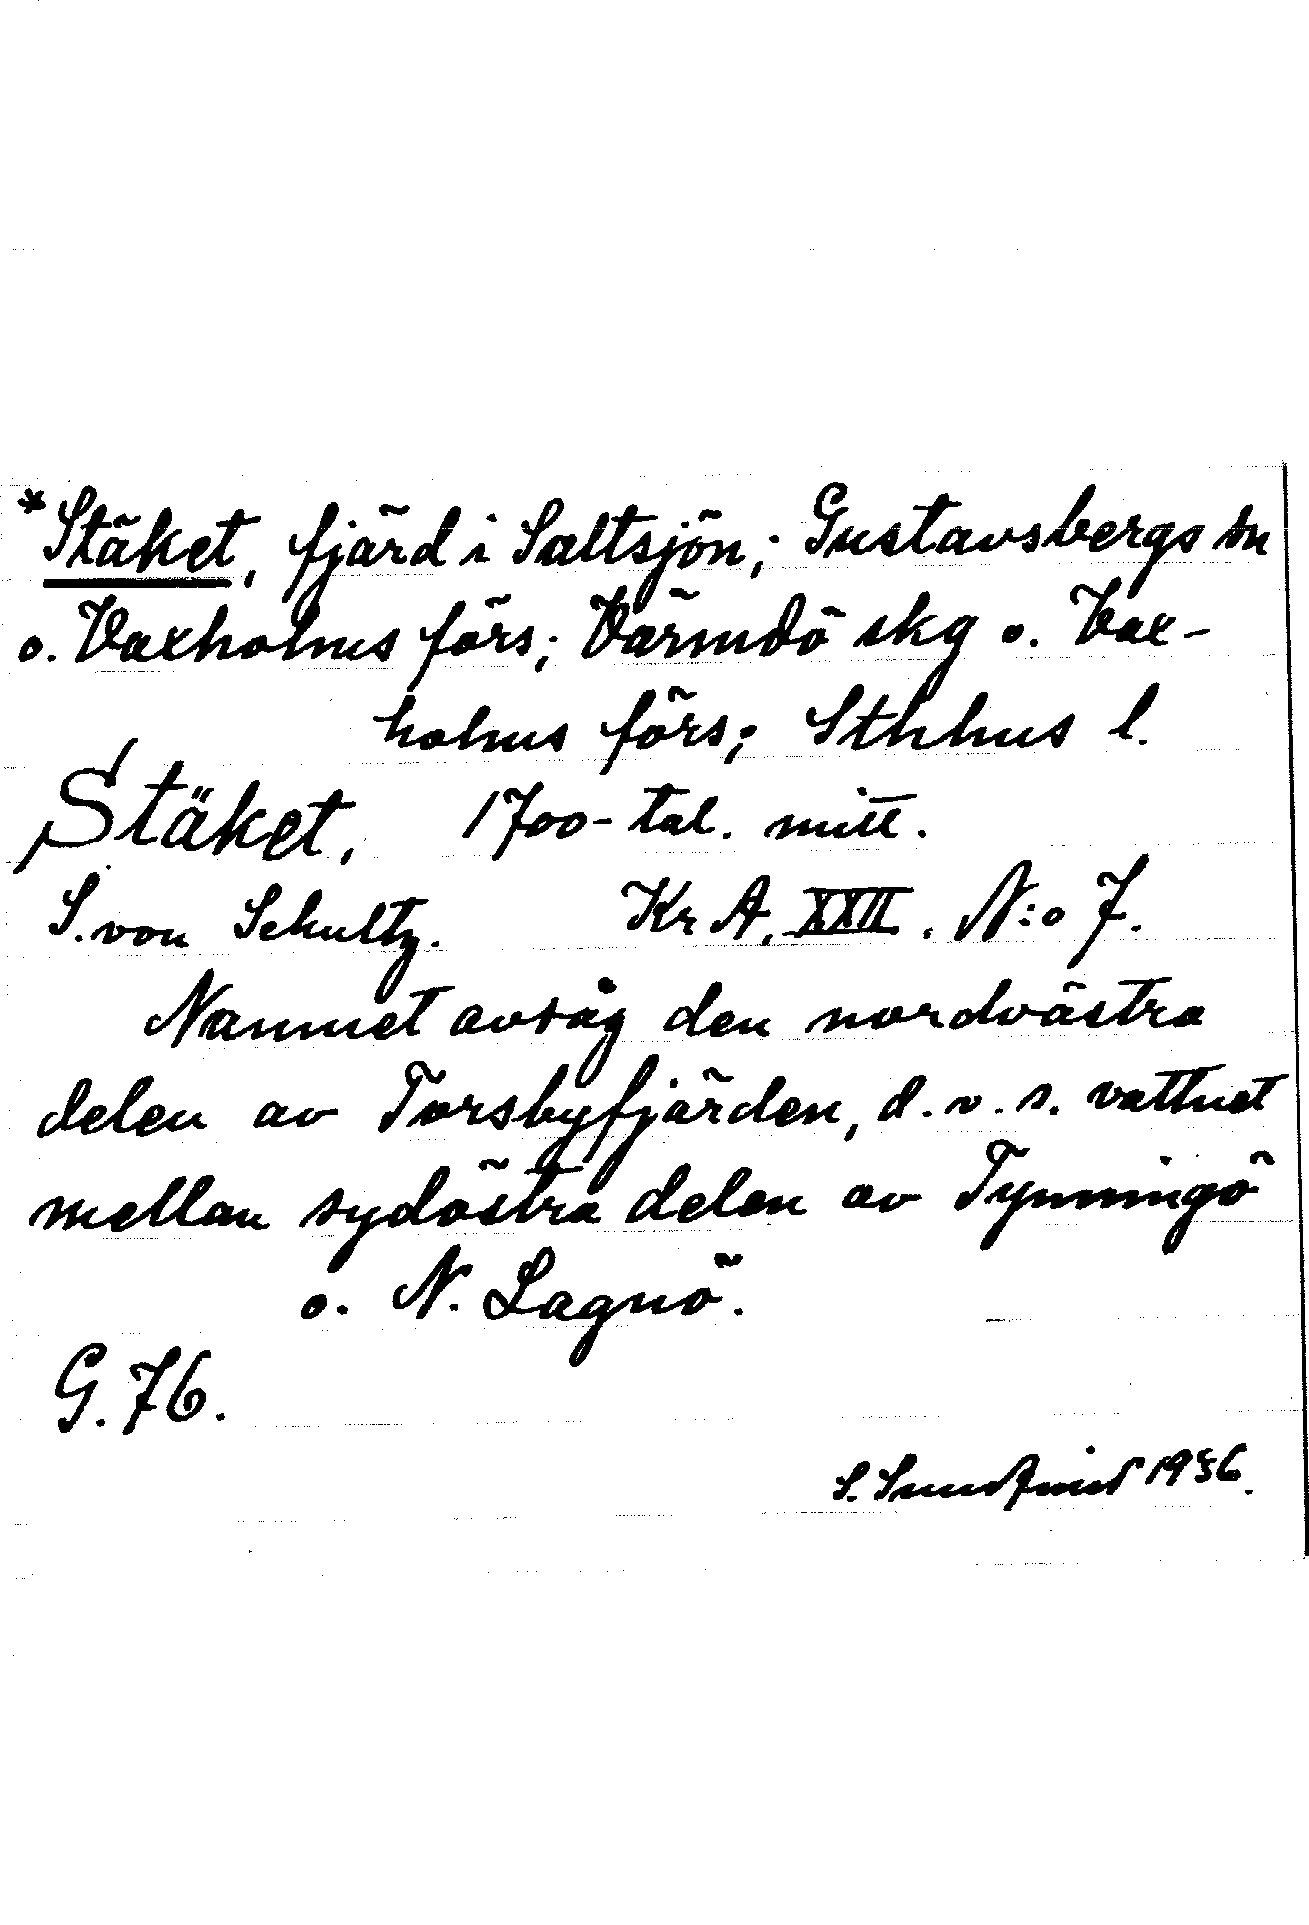 *Stäket, fjärd i Saltsjön; Gustavsbergs sn
o. Vaxholms förs; Värmdö skg o. Vax-
holms förs; Sthlms l.
Stäket. 1700-tal. mitt.
S. von Schultz. Kr A. XXII. N:o 7.
Namnet avsåg den nordvästra
delen av Torsbyfjärden, d.v.s. vattnet
mellan sydöstra delen av Tynningö
o. N. Lagnö.
G. 76.
S. 1936.